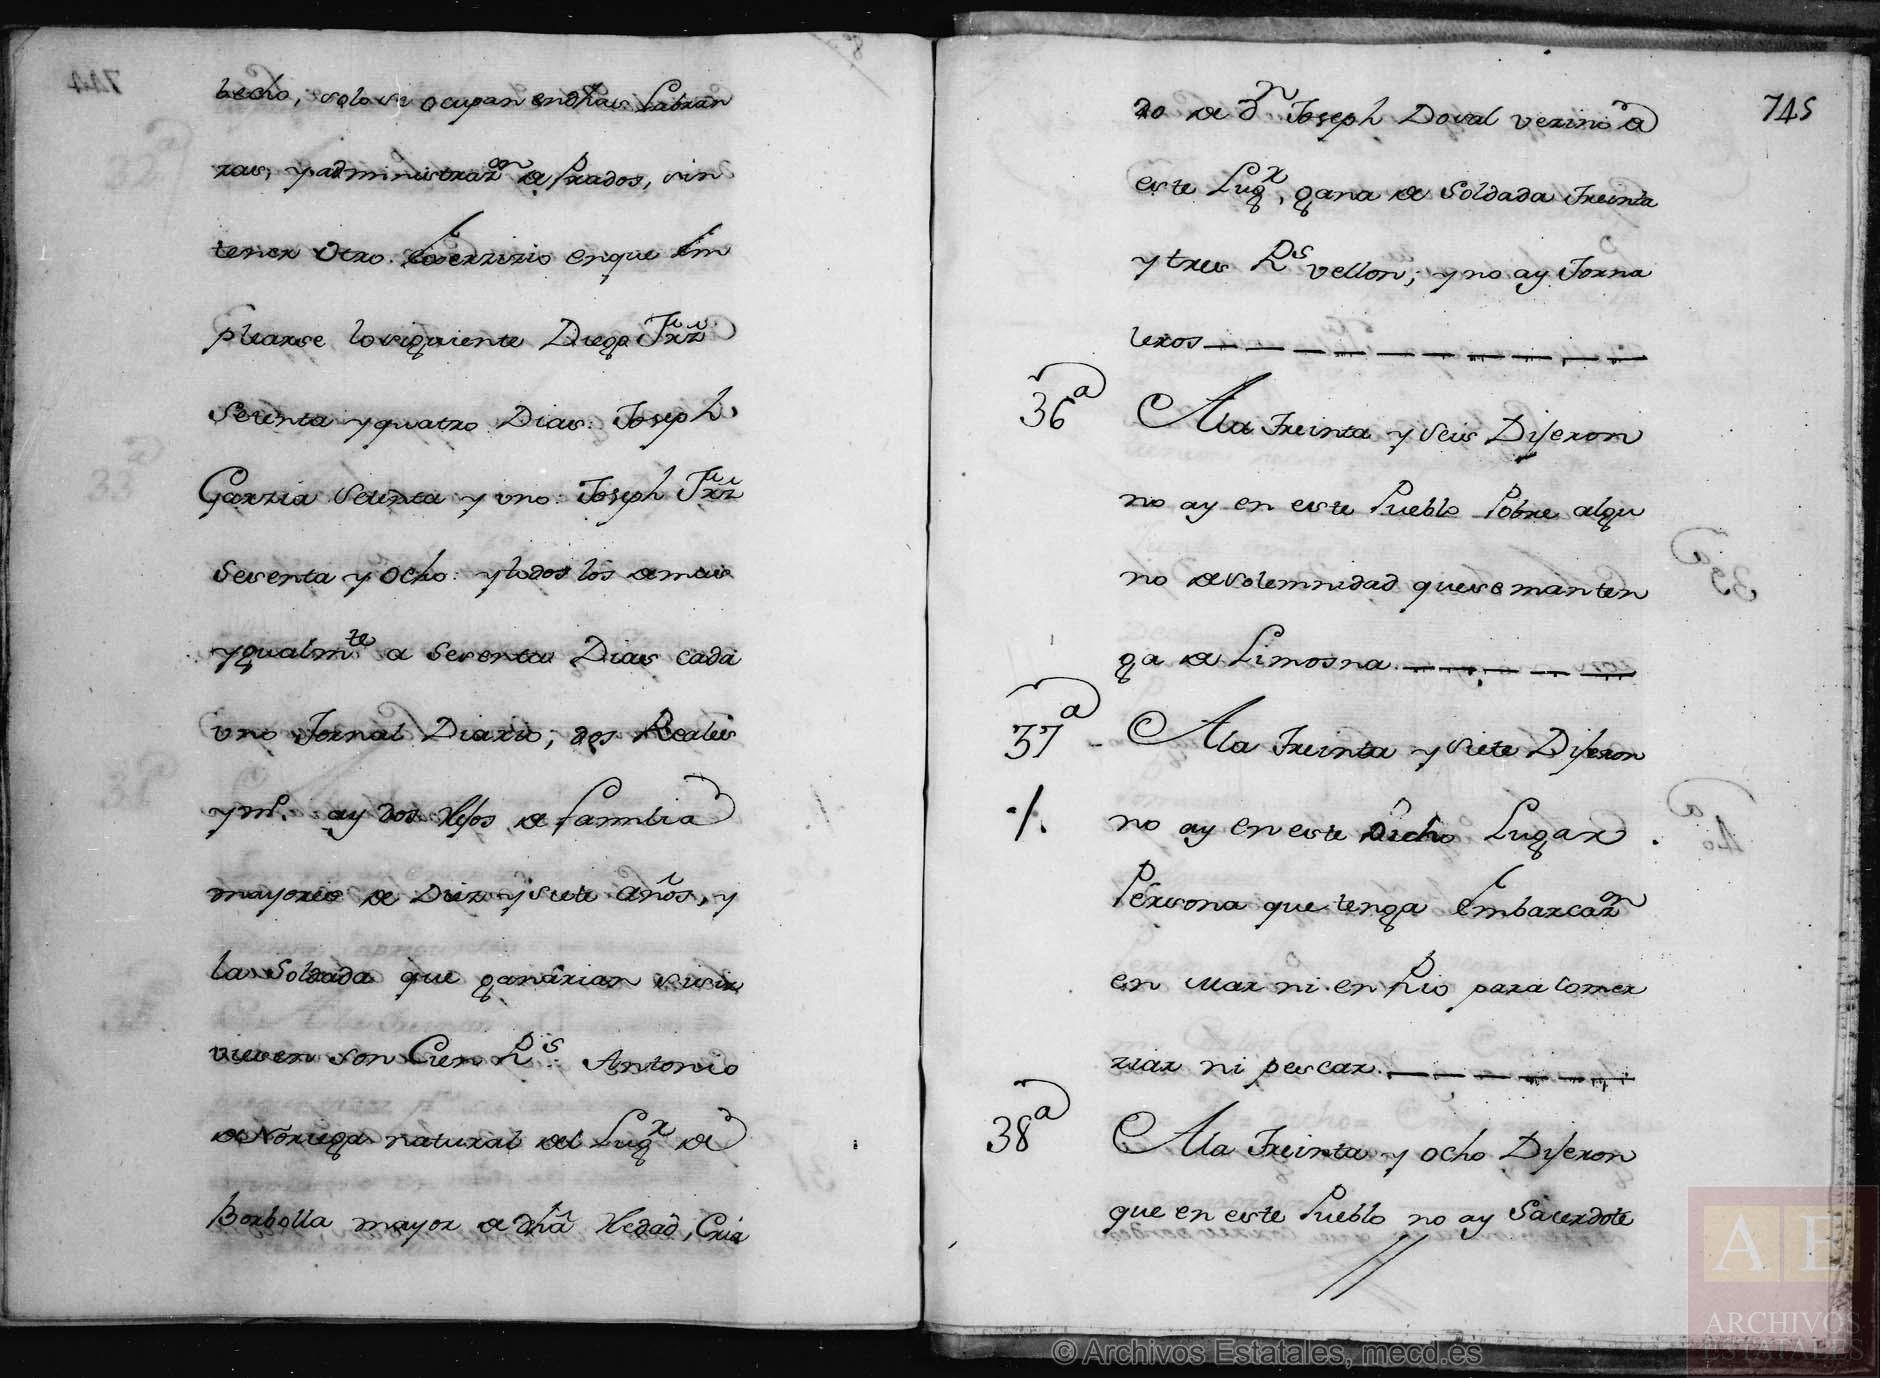 becho, solo se ocupan en dhas Labran
zas, y administrazon de Prados, sin
tener Otro Exerzizio en que Em
plearse lo siguiente Diego Frz
Setenta y quatro Dias: Joseph
Garzia Setenta y uno: Joseph Frz
Sesenta y Ocho: y todos los demas
ygualmte a Sesenta Dias cada
uno Jornal Diario; dos Reales
y mo. ay dos Hijos de familia
mayores de Diez y siete años, y
la Soldada que ganárian si sir
viesen son Cien Rs: Antonio
de Noriega natural del Lugr de
Borbolla mayor de dha Hedad, Cria
745
do de Dn Joseph Doval vezino de
este Lugr, gana de Soldada Treinta
y tres Rs vellon; y no ay Jorna
leros
36a A la Treinta y Seis Dijeron
no ay en este Pueblo Pobre algu
no de solemnidad que se manten
ga de Limosna
37a A la Treinta y Siete Dijeron
no ay en este Dicho Lugar
Persona que tenga Embarcazon
en Mar ni en Rio para Comer
ziar ni pescar
38a A la Treinta y ocho Dijeron
que en este Pueblo no ay Sacerdote
AE
ARCHIVOS
ESTATALES
© Archivos Estatales, mecd.es